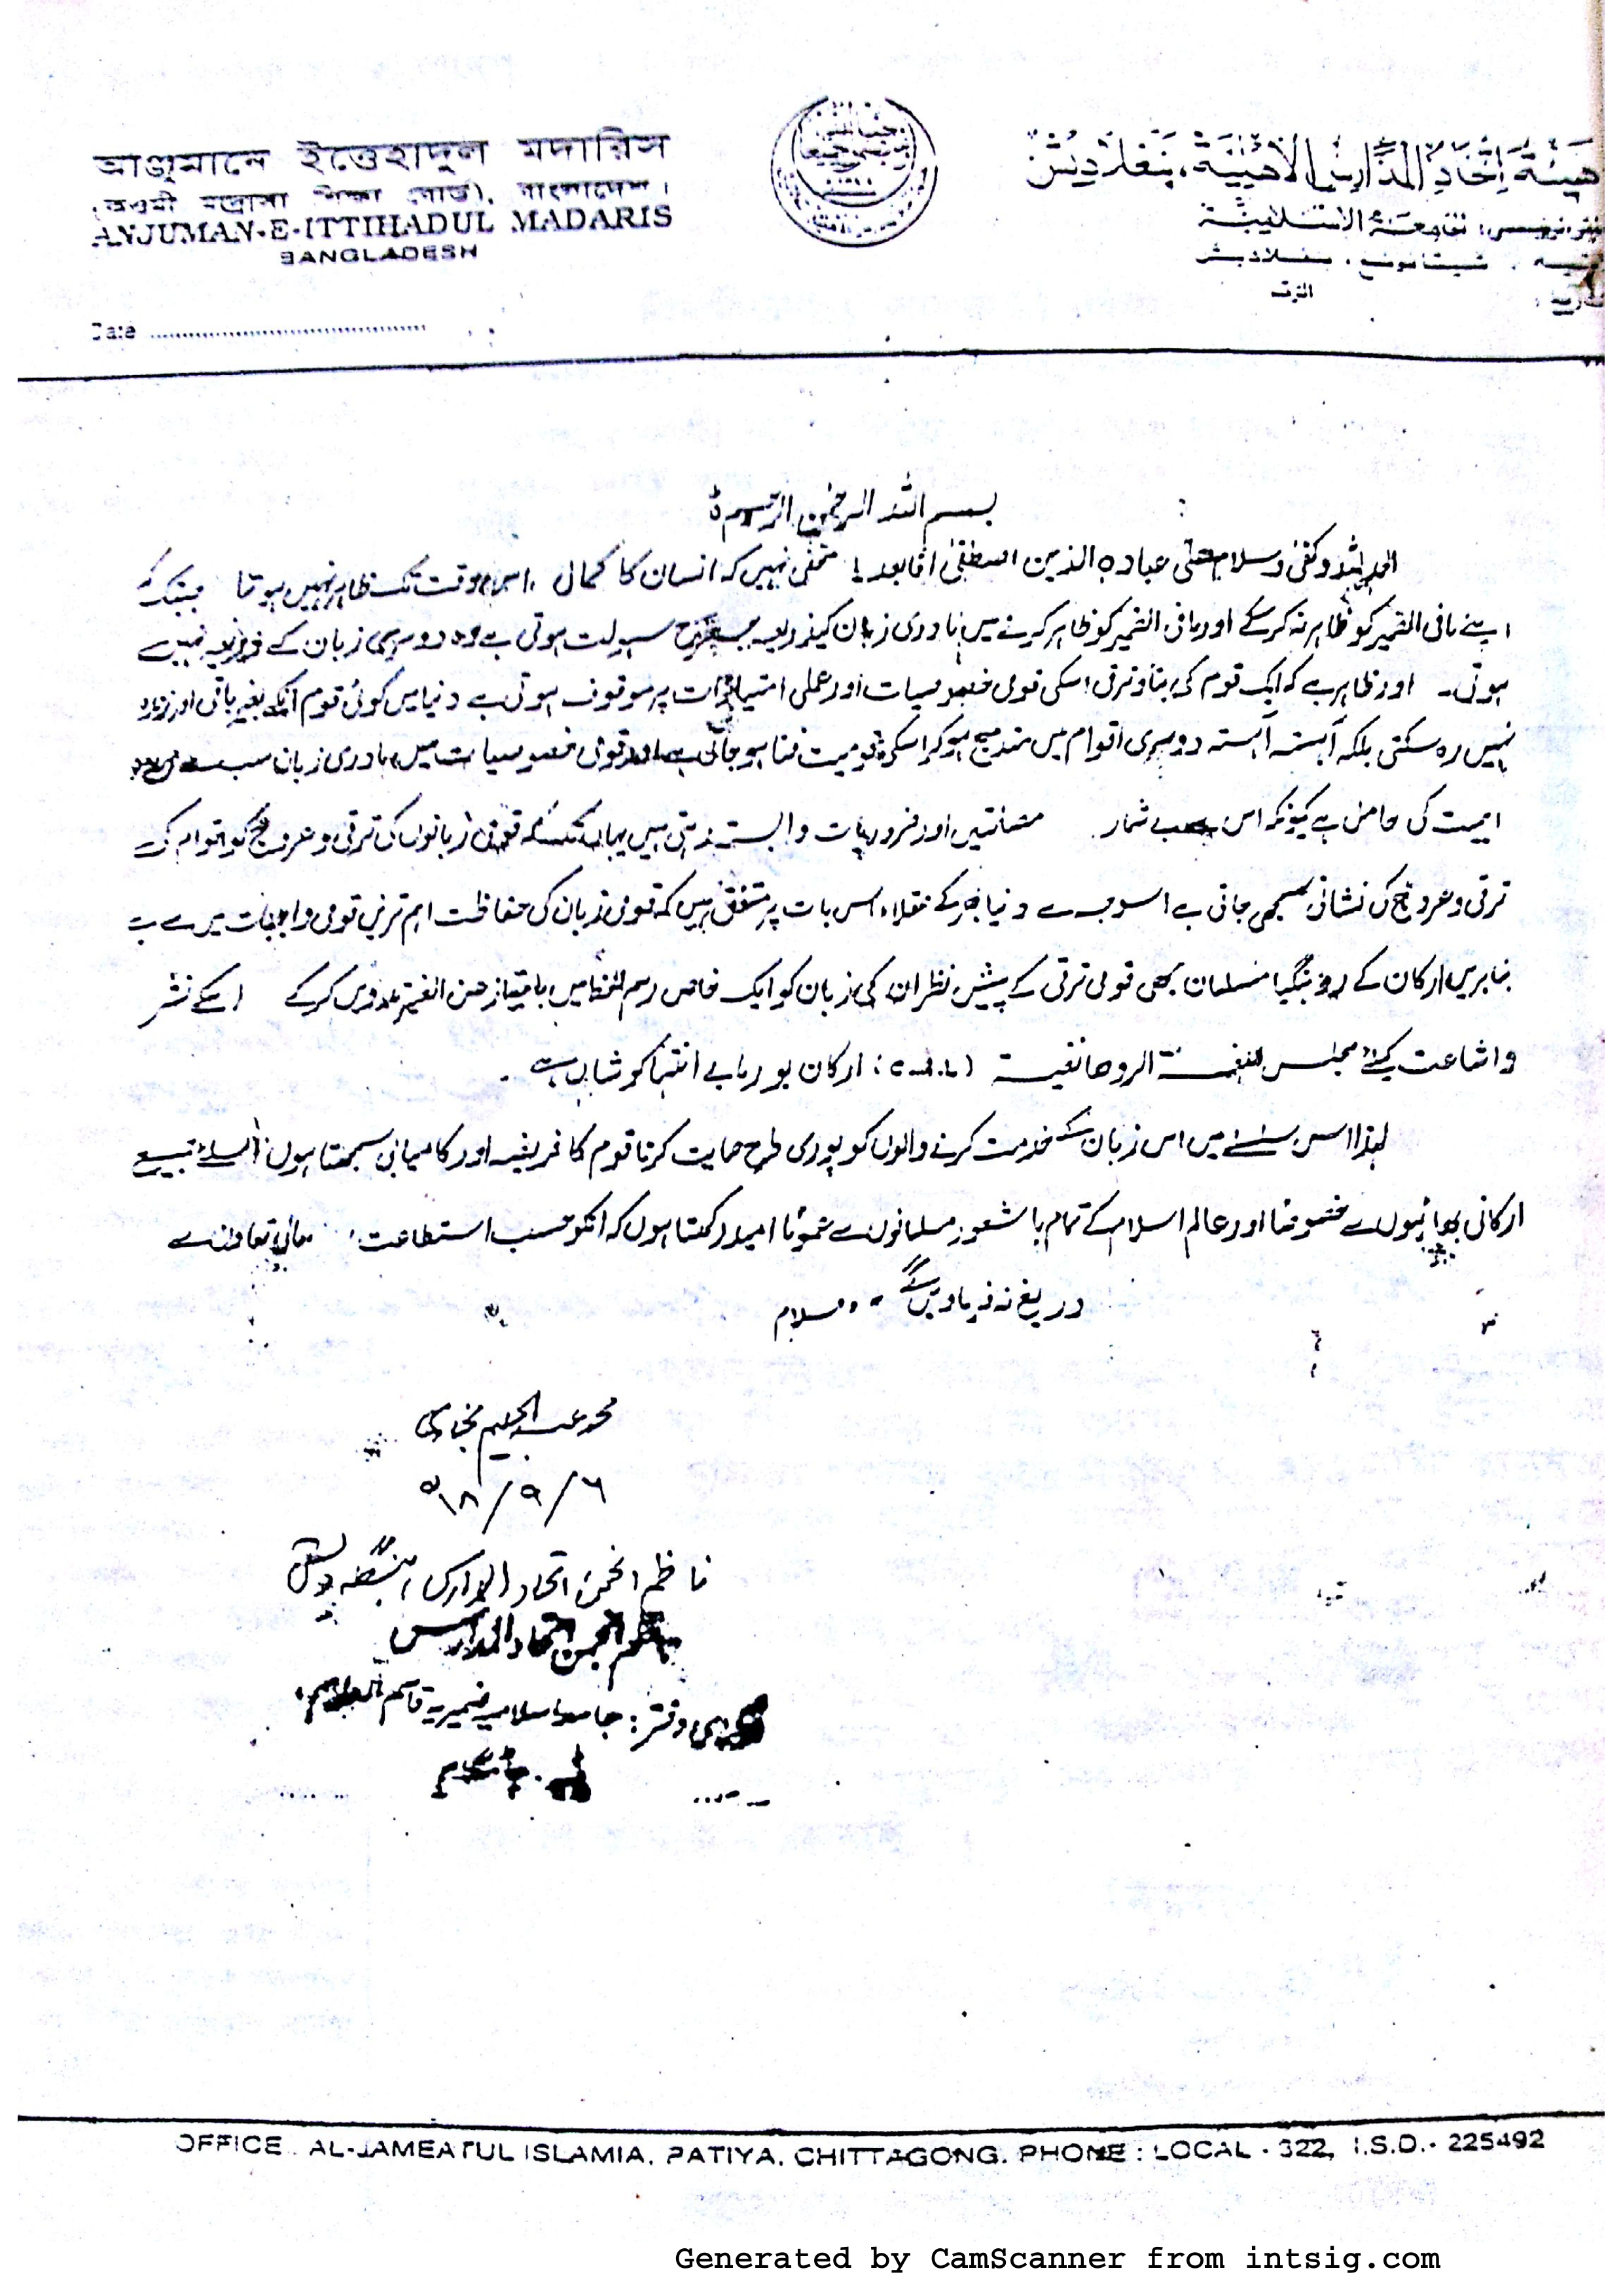 আঞ্জুমানে ইত্তেহাদুল মদারিস
(কওমী মদ্রাসা শিক্ষা বোর্ড), বাংলাদেশ।
ANJUMAN-E-ITTIHADUL MADARIS
BANGLADESH
Date
هيئة اتحاد المدارس الأهلية، بنغلاديش
الجامعة الإسلامية
فتيه . شيتاغونغ . بنغلاديش
الرقم
بسم اللہ الرحمٰن الرحیم
الحمد للہ وکفیٰ وسلام علیٰ عبادہ الذین اصطفیٰ امّا بعد! مخفی نہیں کہ انسان کا کمال اس وقت تک ظاہر نہیں ہوتا جبتک کہ
اپنے مافی الضمیر کو ظاہر نہ کرسکے اور مافی الضمیر کو ظاہر کرنے میں مادری زبان کیذریعہ جسطرح سہولت ہوتی ہے وہ دوسری زبان کے ذریعہ نہیں
ہوتی۔ اور ظاہر ہے کہ ایک قوم کی بقاء وترقی اسکی قومی خصوصیات اور عملی امتیازات پر موقوف ہوتی ہے دنیا میں کوئی قوم اسکے بغیر باقی اور زندہ
نہیں رہ سکتی بلکہ آہستہ آہستہ دوسری اقوام میں مندمج ہوکر اسکی قومیت فنا ہو جاتی ہے اور قومی خصوصیات میں مادری زبان سب سے
اہمیت کی حامل ہے کیونکہ اس سے بے شمار اور ضروریات وابستہ رہتی ہیں یہاں تک کہ قومی زبانوں کی ترقی و عروج کو اقوام کی
ترقی و عروج کی نشانی سمجھی جاتی ہے اسوجہ سے دنیا بھر کے عقلاء اس بات پر متفق ہیں کہ قومی زبان کی حفاظت اہم ترین قومی واجبات میں سے ہے
بنابریں ارکان کے روہنگیا مسلمان بھی قومی ترقی کے پیش نظر ان کی زبان کو ایک خاص رسم الخط میں بامتیاز عن الغیر مدون کرکے اسکے نشر
و اشاعت کیلئے مجلس اللغة الروهانغية ارکان بورما بے انتہا کوشاں ہے۔
لہٰذا اس سلسلے میں اس زبان کے خدمت کرنے والوں کو پوری طرح حمایت کرنا قوم کا فریضہ اور کامیابی سمجھتا ہوں اسلئے جمیع
ارکانی بھائیوں سے خصوصًا اور عالم اسلام کے تمام باشعور مسلمانوں سے عمومًا امید رکھتا ہوں کہ انکو حسب استطاعت مالی تعاون سے
دریغ نہ فرماویں گے۔ وسلام
محمد عبد الحلیم بخاری
٦/٩/١٨ھ
ناظم انجمن اتحاد المدارس، بنگلہ دیش
ناظم انجمن اتحاد المدارس
دفتر: جامعہ اسلامیہ ضمیریہ قاسم العلوم
پٹیہ۔ چاٹگام
OFFICE : AL-JAMEATUL ISLAMIA. PATIYA. CHITTAGONG. PHONE : LOCAL - 322, I.S.D.- 225492
Generated by CamScanner from intsig.com